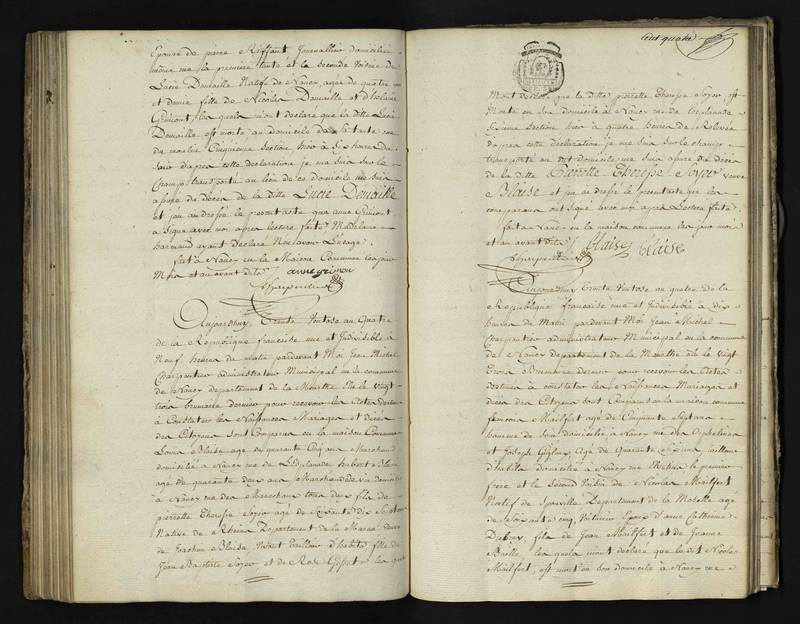 Epouse de pierre Riffaut Journallier domicilies
même rue la première tante et la seconde voisine de
Lucie Demaille Native de Nancy, agée de quatre ans
et demie fille de Nicolas Demaille et d'
Grimont, les quels m'ont déclaré que la ditte Lucie
Demaille est morte au domicile de la tante rue
du moulin Cinquieme Section hier à six heures du
soir d'après cette déclaration je me suis sur le
champ transporté au lieu de ce domicile me suis
assuré du décès de la ditte Lucie Demaille
et j'ai dressé le present acte que anne Grimont
a signé avec moi après lecture faite, Madelaine
ayant déclaré n'en avoir l'usage.
fait à Nancy en la Maison Commune les jour
Mois et an avant dits
Charpentier
Aujourdhuy Trente Ventose an Quatre
de la Republique francaise une et Indivisible à
Neuf heures du matin pardevant Moi Jean Michel
Charpentier administrateur Municipal en la commune
de Nancy departement de la Meurthe élu le vingt
trois brumaire dernier pour recevoir les Actes destinés
à Constater les Naissances Mariages et décès
des Citoyens sont Comparus en la maison Commune
Louis Blaise agé de quarante Cinq ans Marchand
domicilié à Nancy rue de L'Esplanade hubert
agé de quarante deux ans Marchand de vin domicilié
à Nancy rue des Marechaux tous deux fils de
pierrette Therese Soyer agée de soixante dix sept ans
Native de Rheims Departement de la Marne veuve
de Joachim Blaise, vivant tailleur d'habits, fille de
Jean Baptiste Soyer et de Rose les quels
Cent quatre
M'ont déclaré que la ditte pierrette Therese Soyer est
Morte en son domicile à Nancy rue de l'esplanade
Sixieme Section hier à quatre heures de Relevée
d'après cette déclaration je me suis sur le champ
transporté au dit domicile me suis assuré du décès
de la ditte Therese Soyer veuve
Blaise et j'en ai dressé le present acte que les
comparans ont signé avec moi après Lecture faite.
fait à Nancy en la maison commune les jour mois
et an avant dits Blaise Blaise
Charpentier
Aujourdhuy Trente Ventose an quatre de la
Republique francaise une et Indivisible à dix
heures du Matin pardevant Moi Jean Michel
Charpentier administrateur Municipal en la commune
de Nancy departement de la Meurthe élu le vingt
trois Brumaire dernier pour recevoir les Actes
destinés à constater les Naissances Mariages et
décès des Citoyens sont Comparus en la maison commune
francois Mailfert agé de Cinquante Sept ans
homme de loi domicilié à Nancy rue des Orphelines
et Joseph Gigleux agé de Quarante ans tailleur
d'habits domicilié à Nancy rue le premier
frere et le Second Voisin de Nicolas Mailfert
Natif de Departement de la Moselle agé
de soixante cinq Voiturier Epoux d'anne Catherine
fils de Jean Mailfert et de Jeanne
les quels m'ont déclaré que le dit Nicolas
Mailfert, est mort en son domicile à Nancy rue